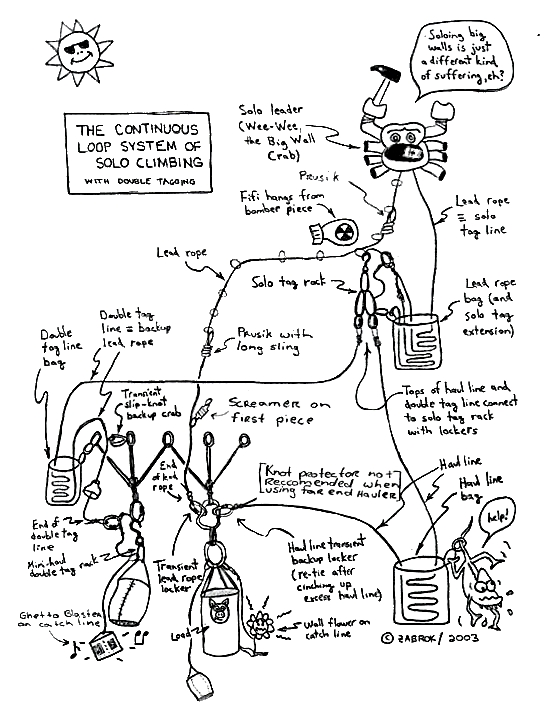 Soloing big
walls is just
a different kind
of suffering, eh?
THE CONTINUOUS
LOOP SYSTEM OF
SOLO CLIMBING
WITH DOUBLE TAGGING
Solo leader
(Wee-Wee,
the Big Wall
Crab)
Prusik
Fifi hangs from
bomber piece
Lead rope
≡ solo
tag line
Lead rope
Solo tag rack
Lead rope
bag (and
solo tag
extension)
Double
tag line
bag
Double tag
line ≡ backup
lead rope
Prusik with
long sling
Transient
slip-knot
backup crab
Screamer on
first piece
Tops of haul line and
double tag line connect
to solo tag rack
with lockers
End of
lead
rope
[Knot protector not
Reccomended when
using far end Hauler]
Haul line
Haul line
bag
help!
End of
double tag
line
Mini-haul
double tag rack
Transient
lead rope
locker
Haul line transient
backup locker
(re-tie after
cinching up
excess haul line)
Ghetto Blaster
on catch line
Load
Wall flower on
catch line
© ZABROK / 2003